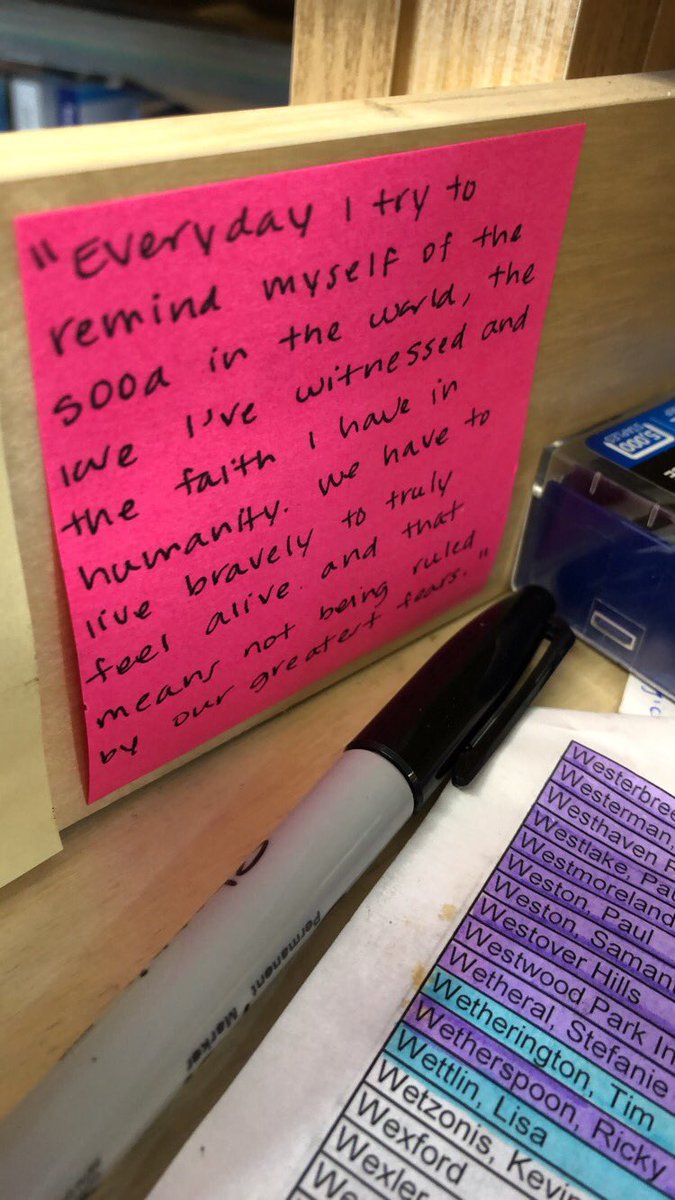 "Everyday I try to
remind myself of the
good in the world, the
love I've witnessed and
the faith I have in
humanity. We have to
live bravely to truly
feel alive and that
means not being ruled
by our greatest fears."
5,000
STAPLES
Permanent Marker
Westerbree
Westerman,
Westhaven P
Westlake, Pau
Westmoreland
Weston, Paul
Weston, Samant
Westover Hills
Westwood Park In
Wetheral, Stefanie
Wetherington, Tim
Wetherspoon, Ricky
Wettlin, Lisa
Wetzonis, Kevi
Wexford
Wexler